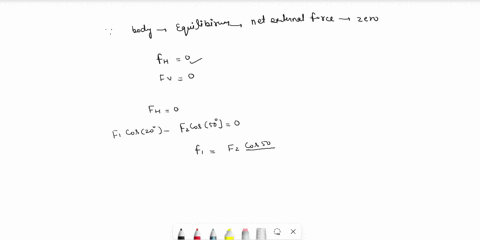 ∵ body → Equilibrium, net external force → zero
fH = 0 ✓
FV = 0
FH = 0
F1 Cos(20°) - F2 Cos(50°] = 0
f1 = F2 Cos 50